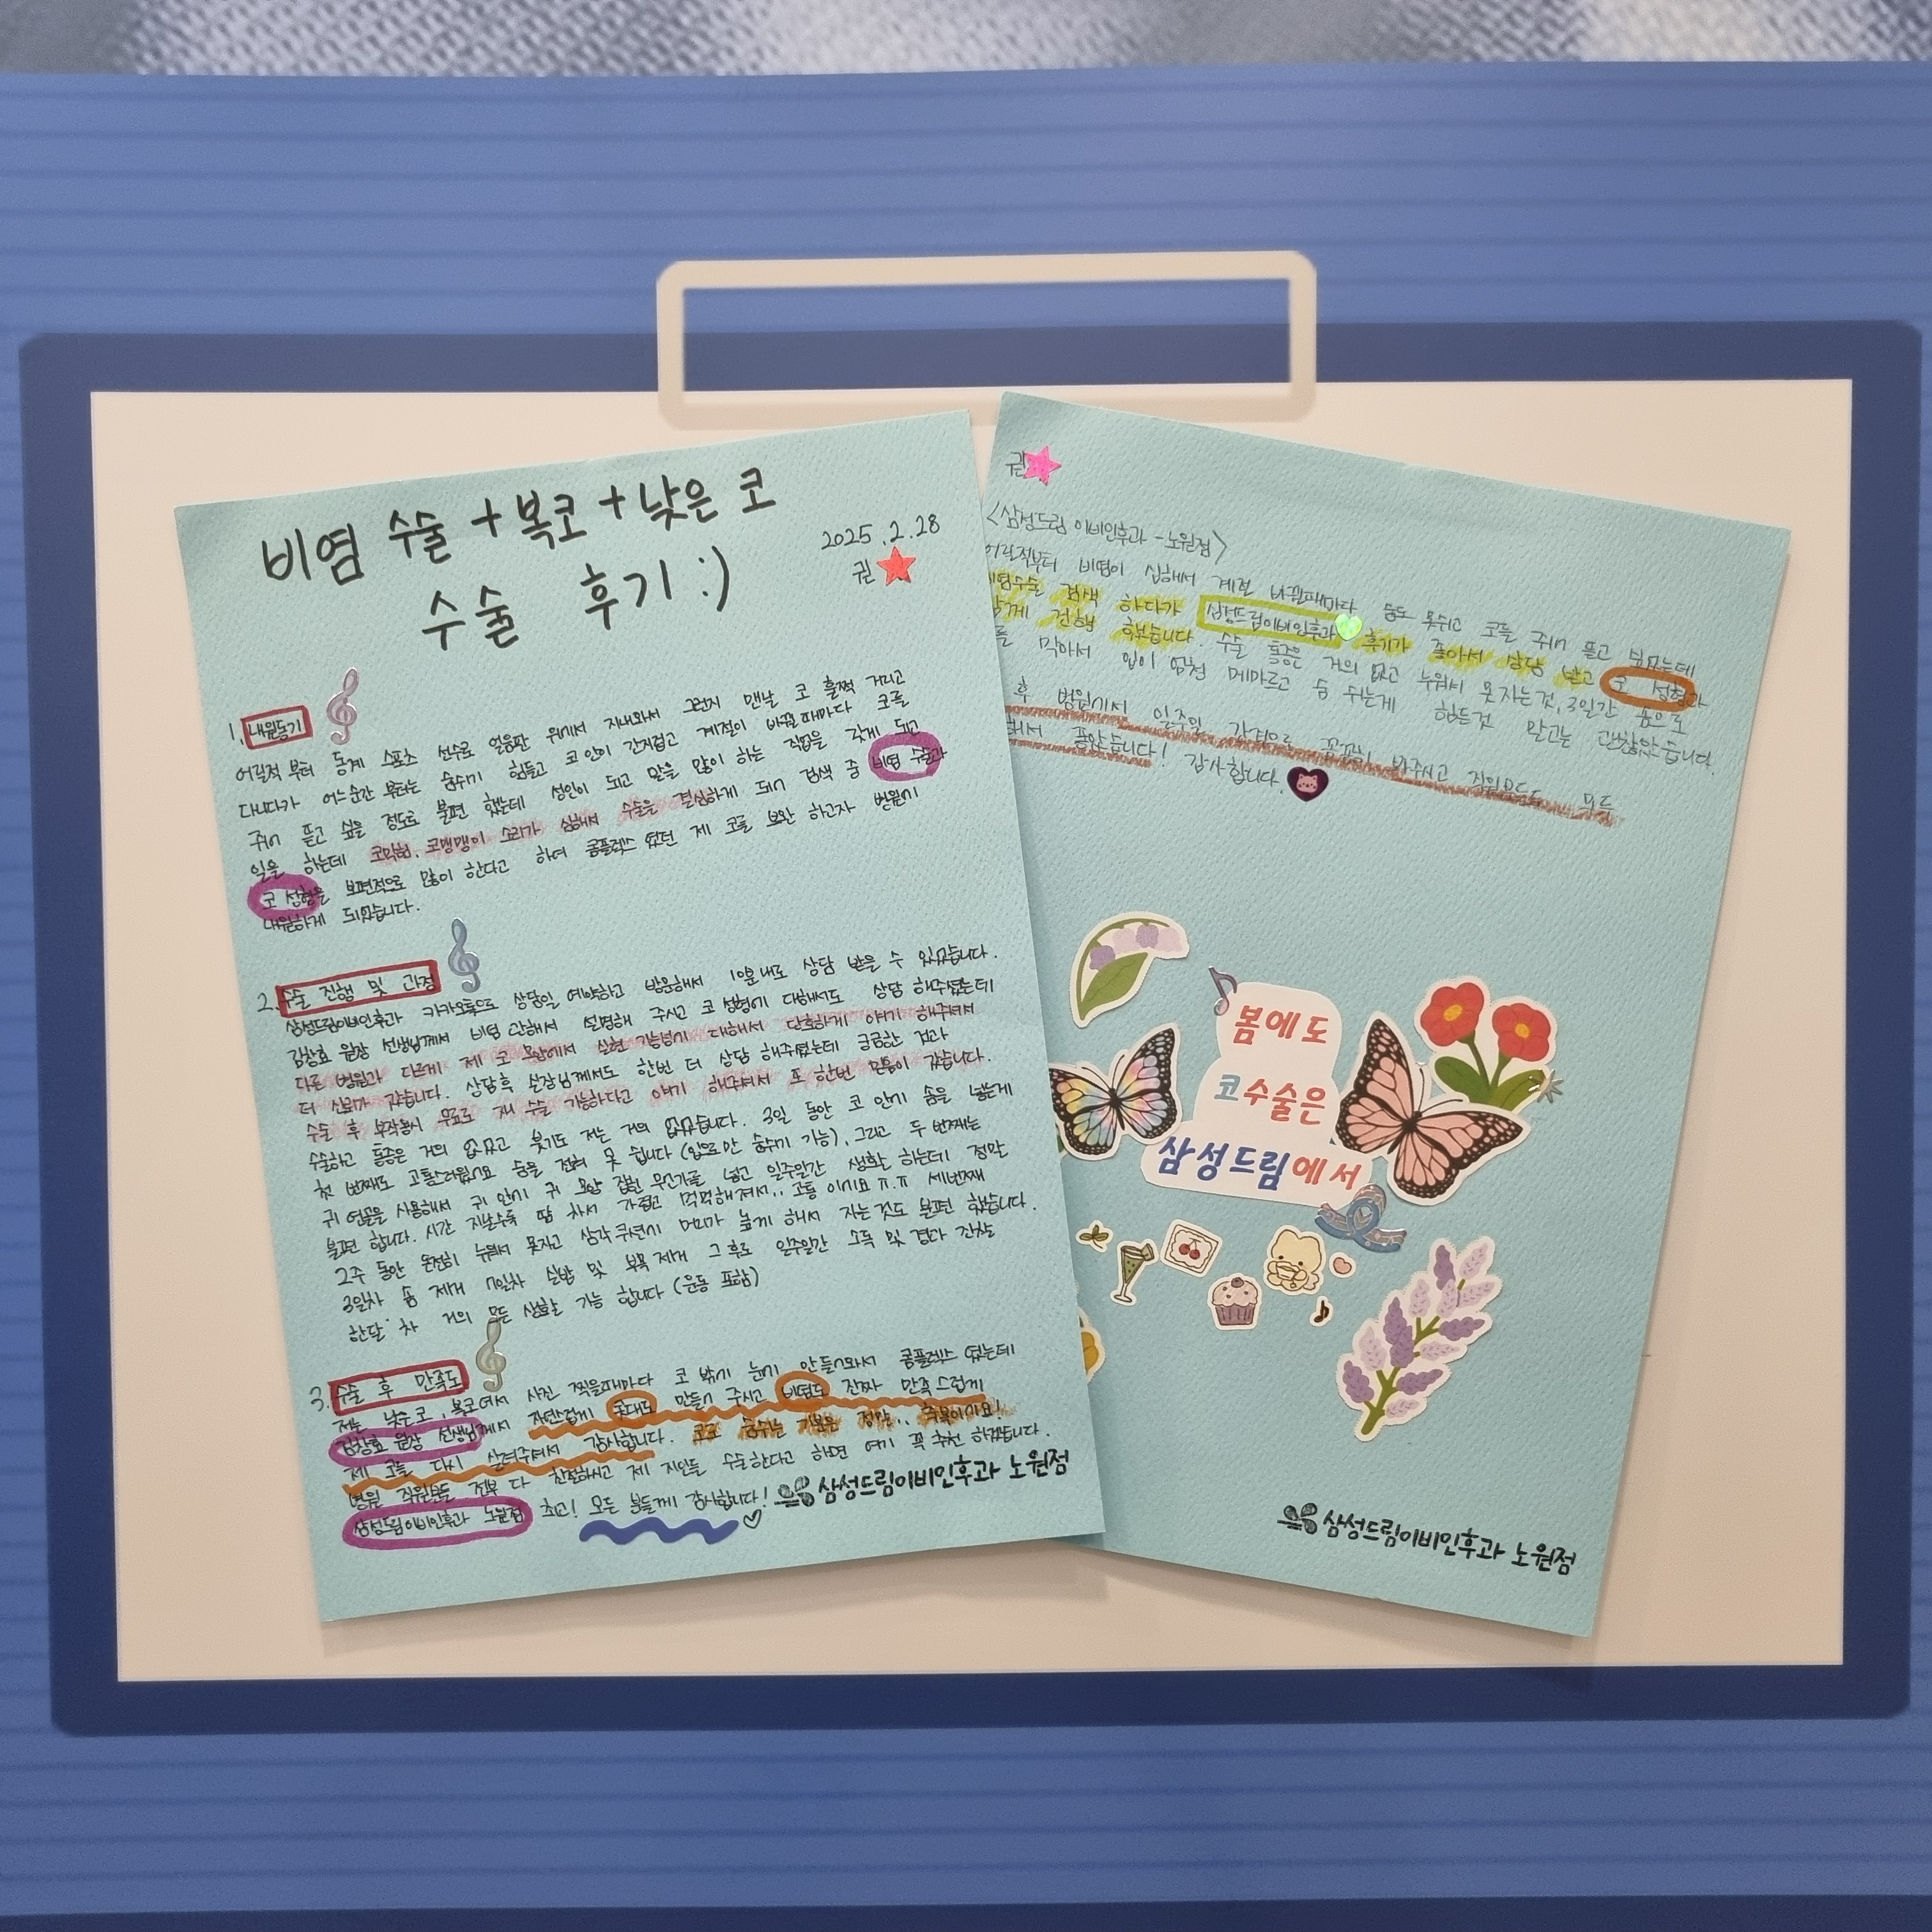 비염 수술 + 복코 + 낮은 코
수술 후기 :)
2025.2.28
권
1. 내원동기
어릴적 부터 동계 스포츠 선수로 얼음판 위에서 지내와서 그런지 맨날 코 훌쩍 거리고
다니다가 어느순간 부터는 숨쉬기 힘들고 코 안이 간지럽고 계절이 바뀔 때마다 코를
쥐어 뜯고 싶을 정도로 불편 했는데 성인이 되고 말을 많이 하는 직업을 갖게 되고
일을 하는데 코막힘, 코맹맹이 소리가 심해서 수술을 결심하게 되어 검색 중 비염 수술과
코 성형을 보편적으로 많이 한다고 하여 콤플렉스 였던 제 코를 보완 하고자 병원에
내원하게 되었습니다.
2. 수술 진행 및 과정
삼성드림이비인후과 카카오톡으로 상담일 예약하고 방문해서 10분내로 상담 받을 수 있었습니다.
김창효 원장 선생님께서 비염 관해서 설명해 주시고 코 성형에 대해서도 상담 해주셨는데
다른 병원과 다르게 제 코 모양에서 실현 가능성에 대해서 단호하게 얘기 해주셔서
더 신뢰가 갔습니다. 상담후 실장님께서도 한번 더 상담 해주셨는데 궁금한 점과
수술 후 부작용시 무료로 재 수술 가능하다고 얘기 해주셔서 또 한번 믿음이 갔습니다.
수술하고 통증은 거의 없었고 붓기도 저는 거의 없었습니다. 3일 동안 코 안에 솜을 넣는게
첫 번째로 고통스러웠어요 숨을 전혀 못 쉽니다 (입으로만 숨쉬기 가능), 그리고 두 번째는
귀 연골을 사용해서 귀 안에 귀 모양 잡힌 무언가를 넣고 일주일간 생활 하는데 정말
불편 합니다. 시간 지날수록 땀 차서 가렵고 먹먹해져서.. 고통 이에요 ㅠ.ㅠ 세번째
2주 동안 온전히 누워서 못자고 삼각쿠션에 머리가 높게 해서 자는것도 불편 했습니다.
3일차 솜 제거 7일차 실밥 및 부목 제거 그 후로 일주일간 소독 및 경과 관찰
한달 차 거의 모든 생활 가능 합니다 (운동 포함)
3. 수술 후 만족도
저는 낮은코, 복코여서 사진 찍을때마다 코 밖에 눈에 안들어와서 콤플렉스 였는데
김창효 원장 선생님께서 자연스럽게 콧대도 만들어 주시고 비염도 진짜 만족스럽게
제 코를 다시 살려주셔서 감사합니다. 코로 숨쉬는 기분은 정말.. 축복이에요!
병원 직원분들 전부 다 친절하시고 제 지인들 수술한다고 하면 여기 꼭 추천 하겠습니다.
삼성드림이비인후과 노원점 최고! 모든 분들께 감사합니다!
삼성드림이비인후과 노원점
권
<삼성드림 이비인후과 - 노원점>
어릴적부터 비염이 심해서 계절 바뀔때마다 숨도 못쉬고 코를 쥐어 뜯고 싶었는데
비염수술 검색 하다가 삼성드림이비인후과 후기가 좋아서 상담 받고 코 성형과
함께 진행 하였습니다. 수술 통증은 거의 없고 누워서 못자는것, 3일간 솜으로
막아서 입이 엄청 메마르고 숨 쉬는게 힘든것 말고는 괜찮았습니다.
후 병원에서 일주일 간격으로 꼼꼼히 봐주시고 직원분들도 모두
해서 좋았습니다! 감사합니다.
봄에도
코수술은
삼성드림에서
삼성드림이비인후과 노원점